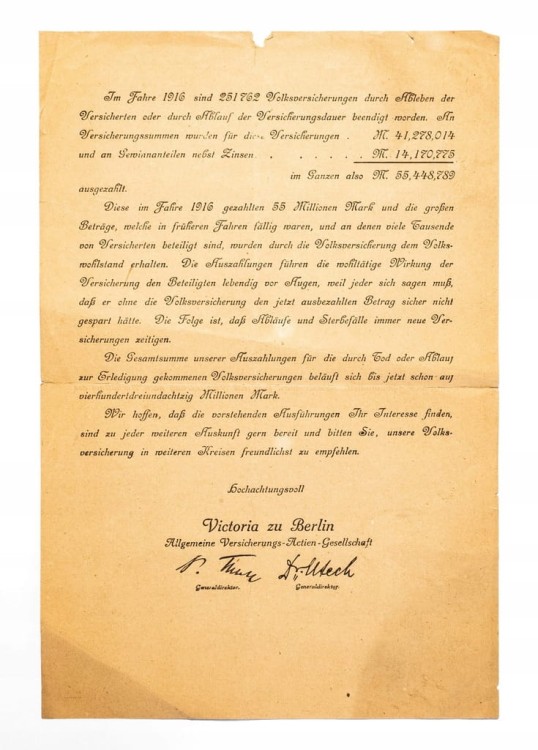 Im Jahre 1916 sind 251762 Volksversicherungen durch Ableben der
Versicherten oder durch Ablauf der Versicherungsdauer beendigt worden. An
Versicherungssummen wurden für diese Versicherungen . M. 41,278,014
und an Gewinnanteilen nebst Zinsen . . . . . . M. 14,170,775
im Ganzen also M. 55,448,789
ausgezahlt.
Diese im Jahre 1916 gezahlten 55 Millionen Mark und die großen
Beträge, welche in früheren Jahren fällig waren, und an denen viele Tausende
von Versicherten beteiligt sind, wurden durch die Volksversicherung dem Volks-
wohlstand erhalten. Die Auszahlungen führen die wohltätige Wirkung der
Versicherung den Beteiligten lebendig vor Augen, weil jeder sich sagen muß,
daß er ohne die Volksversicherung den jetzt ausbezahlten Betrag sicher nicht
gespart hätte. Die Folge ist, daß Abläufe und Sterbefälle immer neue Ver-
sicherungen zeitigen.
Die Gesamtsumme unserer Auszahlungen für die durch Tod oder Ablauf
zur Erledigung gekommenen Volksversicherungen beläuft sich bis jetzt schon auf
vierhundertdreiundachtzig Millionen Mark.
Wir hoffen, daß die vorstehenden Ausführungen Ihr Interesse finden,
sind zu jeder weiteren Auskunft gern bereit und bitten Sie, unsere Volks-
versicherung in weiteren Kreisen freundlichst zu empfehlen.
Hochachtungsvoll
Victoria zu Berlin
Allgemeine Versicherungs-Actien-Gesellschaft
P. Dr. Utech
Generaldirektor. Generaldirektor.